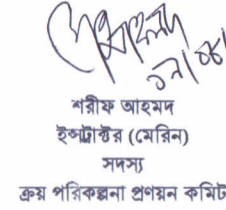 শরীফ আহমদ
ইন্সট্রাক্টর (মেরিন)
সদস্য
ক্রয় পরিকল্পনা প্রণয়ন কমিট